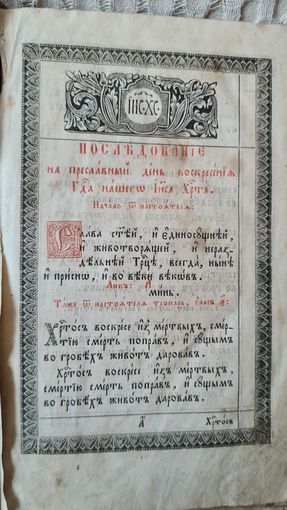 ІИС ХС
ПОСЛѢДОВАНІЕ
на преславный день воскресенія
Гда нашегѡ Іиса Хрта.
Начало ѿ настоятеля:
Слава стѣй, и единосущнѣй,
и животворящей, и нераз-
дѣльнѣй Трцѣ, всегда, нынѣ
и приснѡ, и во вѣки вѣкѡвъ.
Ликъ: А
минь.
Таже ѿ настоятеля тропарь, гласъ є:
Хртосъ воскресе из̾ мертвыхъ, смер-
тію смерть поправъ, и сущымъ
во гробѣхъ животъ даровавъ.
Хртосъ воскресе из̾ мертвыхъ,
смертію смерть поправъ, и сущымъ
во гробѣхъ животъ даровавъ.
А Хртосъ